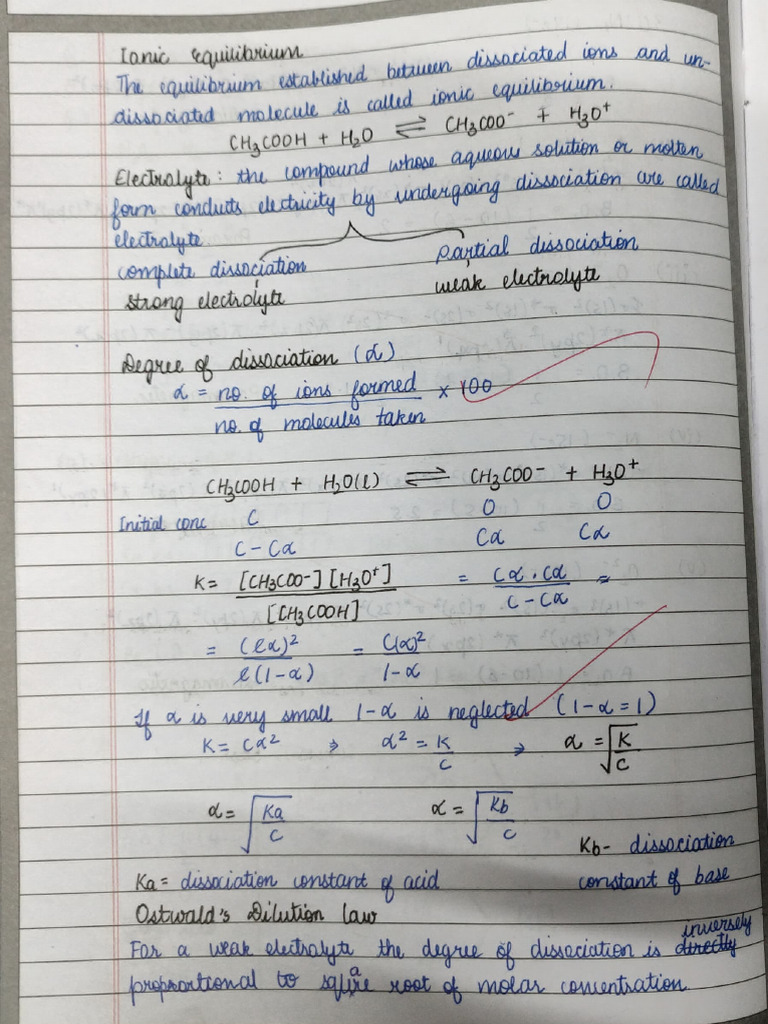 Ionic Equilibrium
The equilibrium established between dissociated ions and un-
dissociated molecule is called ionic equilibrium.
CH₃COOH + H₂O ⇌ CH₃COO⁻ + H₃O⁺
Electrolyte: the compound whose aqueous solution or molten
form conducts electricity by undergoing dissociation are called
electrolyte
complete dissociation partial dissociation
strong electrolyte weak electrolyte
Degree of dissociation (α)
α = no. of ions formed / no. of molecules taken × 100
CH₃COOH + H₂O(l) ⇌ CH₃COO⁻ + H₃O⁺
Initial conc C O O
C - Cα Cα Cα
K = [CH₃COO⁻][H₃O⁺] / [CH₃COOH] = Cα . Cα / C - Cα =
= (Cα)² / C(1-α) = C(α)² / 1-α
If α is very small 1-α is neglected (1-α = 1)
K = Cα² ⇒ α² = K/C ⇒ α = √K/C
α = √Ka/C α = √Kb/C
Kb - dissociation
Ka = dissociation constant of acid constant of base
Ostwald's Dilution law
inversely
For a weak electrolyte the degree of dissociation is directly
proportional to square root of molar concentration.